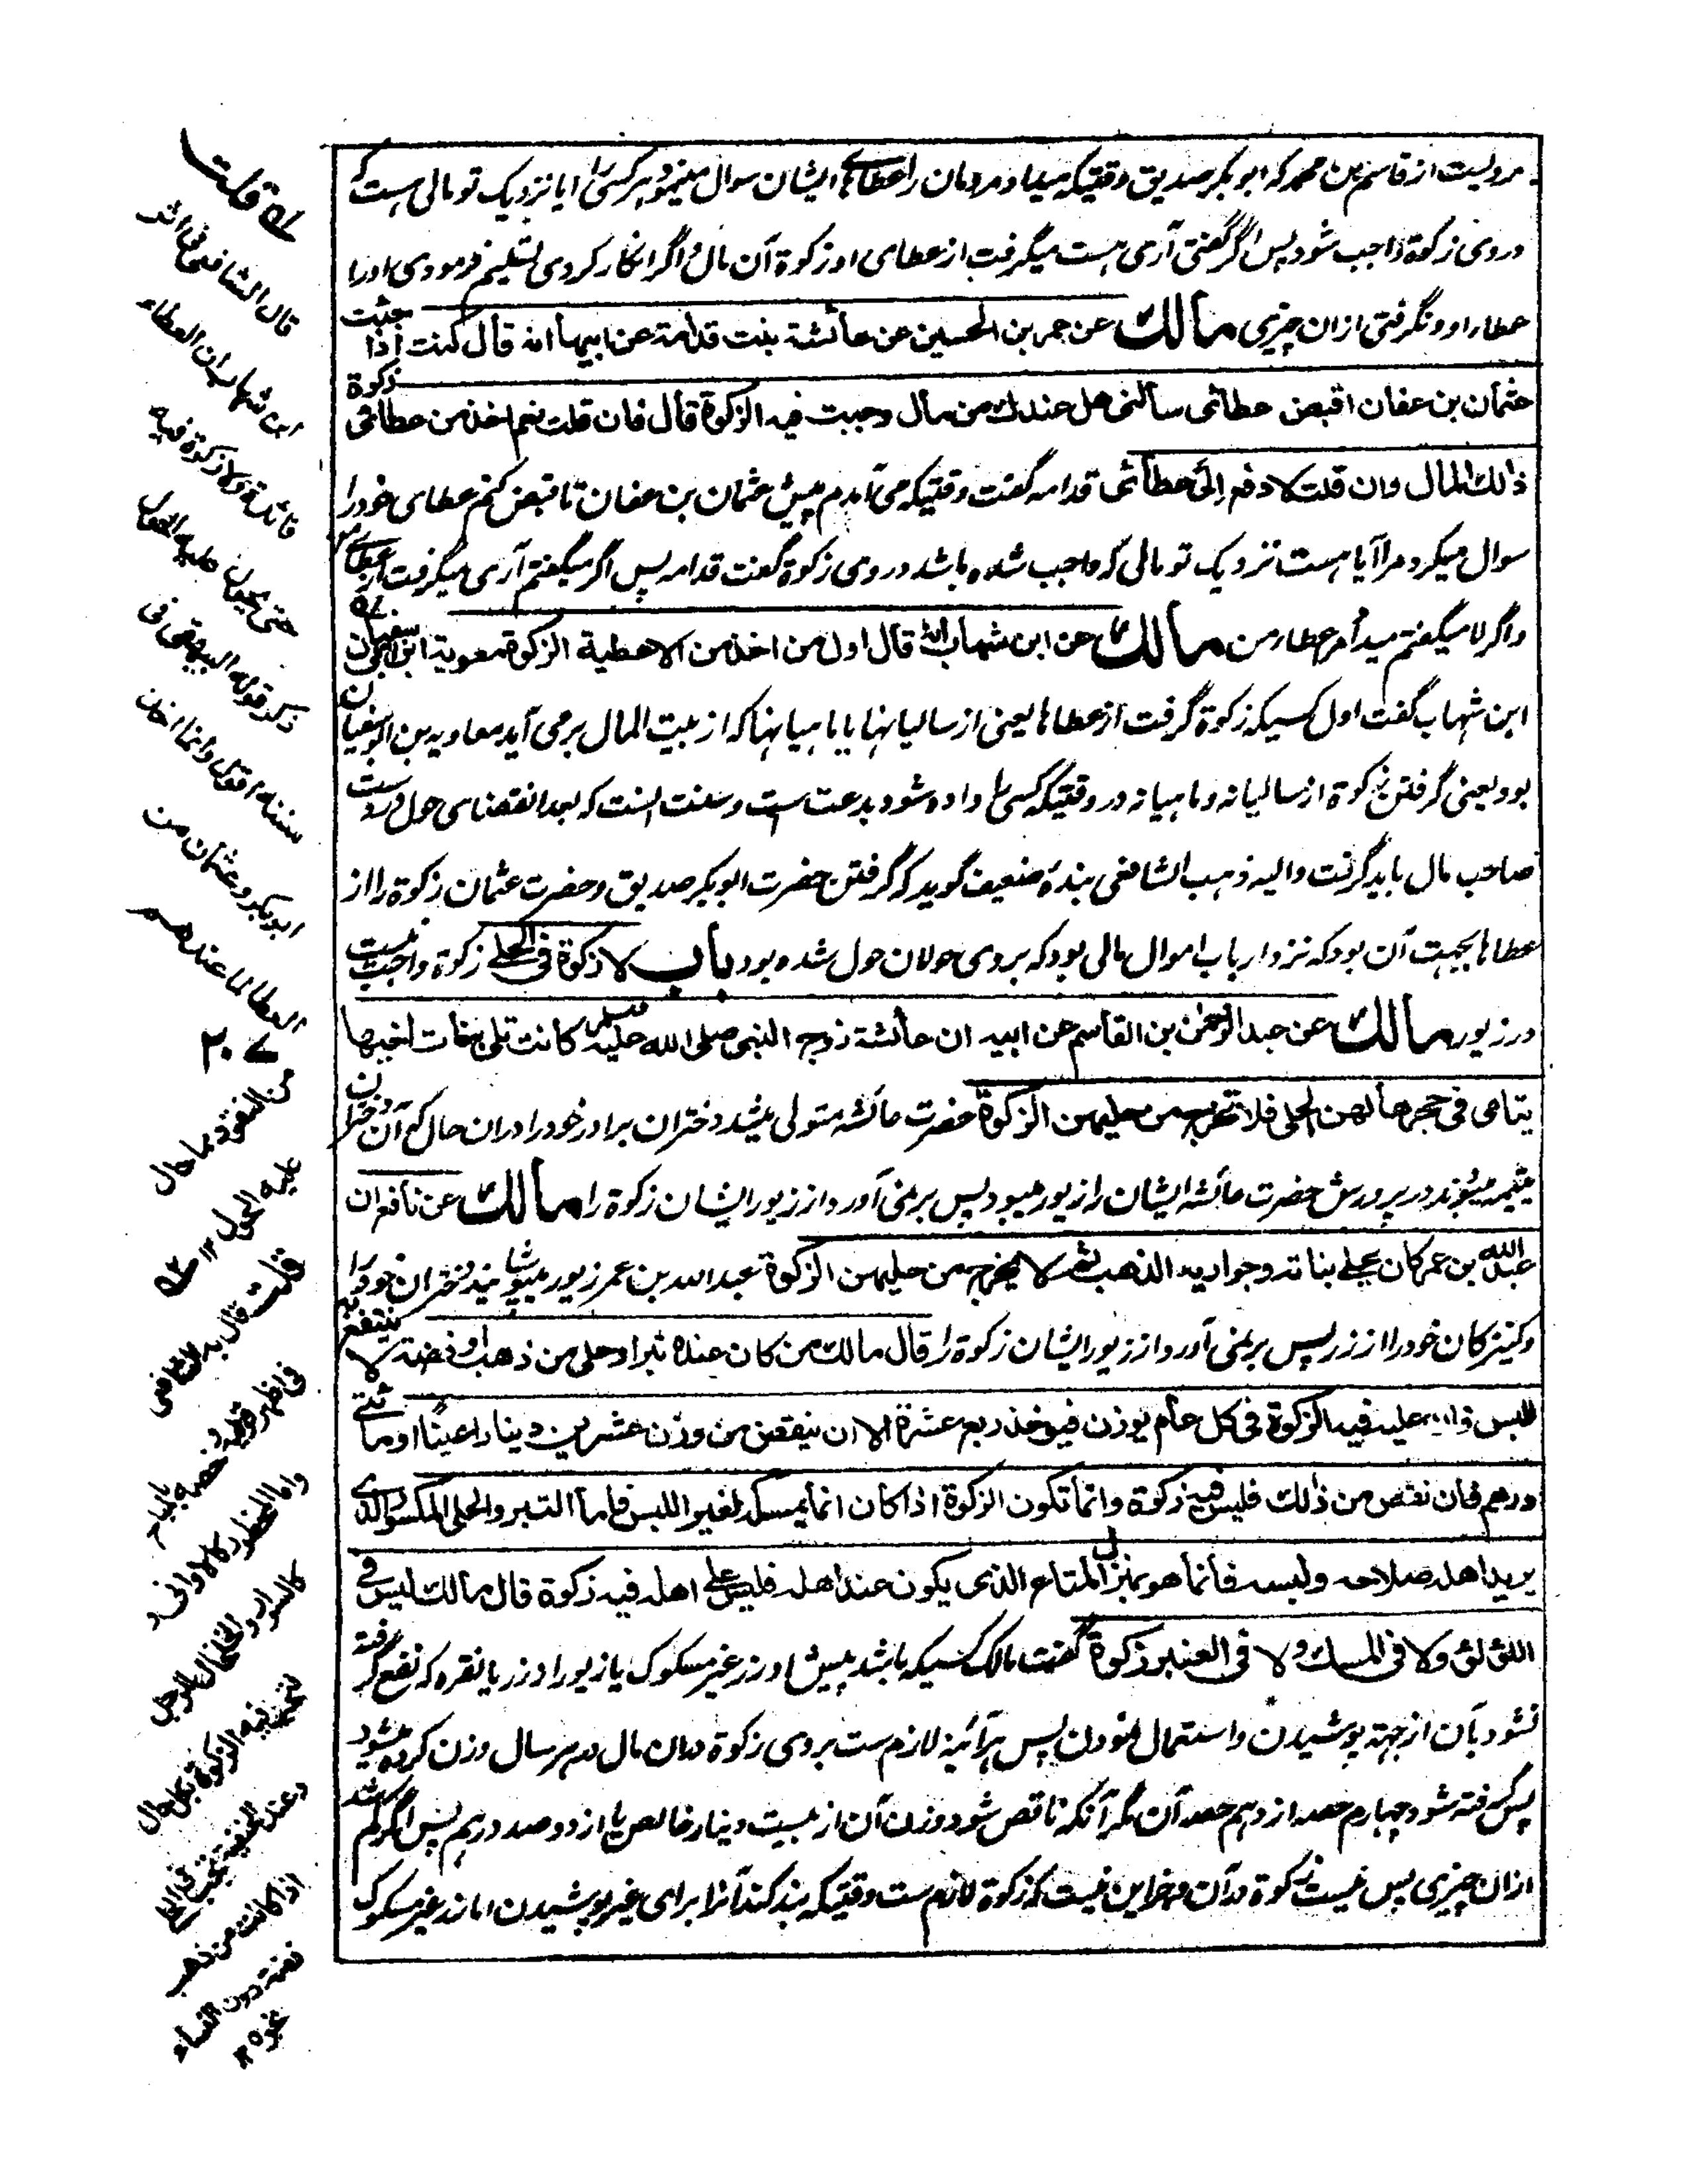 مرویست از قاسم بن محمد که ابو بکر صدیق وقتیکه میداد مردمان را عطاهای ایشان سوال مینمود هر کسی را ایا نزدیک تو مالی هست که
در وی زکوة واجب شود پس اگر گفتی آری هست میگرفت از عطای او زکوة آن مال و اگر انکار کردی تسلیم فرمودی او را
عطار او و نگرفتی ازان چیزی مالك عن عمر بن الحسین عن عائشة بنت قدامة عن ابیها انه قال کنت اذا جئت
عثمان بن عفان اقبض عطائی سألنی هل عندك من مال وجبت فیه الزکوة قال فان قلت نعم اخذ من عطائی زکوة
ذالك المال وان قلت لا دفع إلیّ عطائی قدامه گفت وقتیکه می آمدم پیش عثمان بن عفان تا قبض کنم عطای خود را
سوال میکرد مرا آیا هست نزدیک تو مالی که واجب شده باشد در وی زکوة گفت قدامه پس اگر میگفتم آری میگرفت از عطای من
و اگر لا میگفتم میداد مرا عطار من مالك عن ابن شهاب انه قال اول من اخذ من الاعطیة الزکوة معویة ابن ابی سفیان
ابن شهاب گفت اول کسیکه زکوة گرفت از عطاها یعنی از سالیانها یا ماهیانها که از بیت المال بر می آید معاویه بن ابو سفیان
بود یعنی گرفتن زکوة از سالیانه و ماهیانه در وقتیکه کسی را داده شود بدعت ست و سنت آنست که بعد انقضای حول از دست
صاحب مال باید گرفت و الیه ذهب الشافعی بندهٔ ضعیف گوید که گرفتن حضرت ابو بکر صدیق و حضرت عثمان زکوة را از
عطاها بجهت آن بود که نزد ارباب اموال مالی بود که بر وی حولان حول شده بود باب لا زکوة فی الحلی زکوة واجب نیست
در زیور مالك عن عبد الرحمن بن القاسم عن ابیه ان عائشة زوج النبی صلی الله علیه وسلم کانت تلی بنات اخیها
یتامی فی حجرها لهن الحلی فلا تخرج من حلیهن الزکوة حضرت عائشه متولی میشد دختران برادر خود را دران حال که آن دختران
یتیمه میبودند در پرورش حضرت عائشه ایشان را زیور میبود پس بر نمی آورد از زیور ایشان زکوة را مالك عن نافع ان
عبد الله بن عمر کان یحلی بناته وجواریه الذهب ثم لا یخرج من حلیهن الزکوة عبد الله بن عمر زیور میپوشانید دختران خود را
و کنیزکان خود را از زر پس بر نمی آورد از زیور ایشان زکوة را قال مالك من کان عنده تبر او حلی من ذهب او فضة لا ینتفع به
للبس فان علیه فیه الزکوة فی کل عام یوزن فیوخذ ربع عشرة الا ان ینقص من وزن عشرین دینارا عینًا او مأتی
درهم فان نقص من ذلك فلیس فیه زکوة وانما تکون الزکوة اذا کان انما یمسکه لغیر اللبس فاما التبر والحلی المکسور الذی
یرید اهله صلاحه ولبسه فأنما هو بمنزلة المتاع الذی یکون عند اهله فلیس علی اهله فیه زکوة قال مالك لیس فی
اللؤلؤ ولا فی المسك ولا فی العنبر زکوة گفت مالک کسیکه باشد پیش او زر غیر مسکوک یا زیور از زر یا نقره که نفع گرفته
نشود بآن از جهة پوشیدن و استعمال نمودن پس هر آئینه لازم ست بر وی زکوة دران مال در هر سال وزن کرده میشود
پس گرفته شود چهارم حصه از دهم حصه آن مگر آنکه ناقص شود وزن آن از بیست دینار خالص یا از دو صد درهم پس اگر کم شد
ازان چیزی پس نیست زکوة در آن و جز این نیست که زکوة لازم ست وقتیکه بند کند آنرا برای غیر پوشیدن اما زر غیر مسکوک
قلت
قال الشافعی فی اثر
ابن شهاب ان العطاء
فائدة ولا زکوة فیه
حتی یحول علیه الحول
ذکر قوله البیهقی فی
سننه اقول وانما اخذ
ابو بکر وعثمان من
العطا لما عندهم
من النقود مما حال
علیه الحول ۱۲
قلت قال به الشافعی
فی اظهر قولیه و خصه بالمباح
واما المحظور کالاوانی و
کالسوار والخلخال للرجل
تجب فیه الزکوة بکل حال
وعند الحنفیة تجب فی الحلی
اذا کانت من ذهب